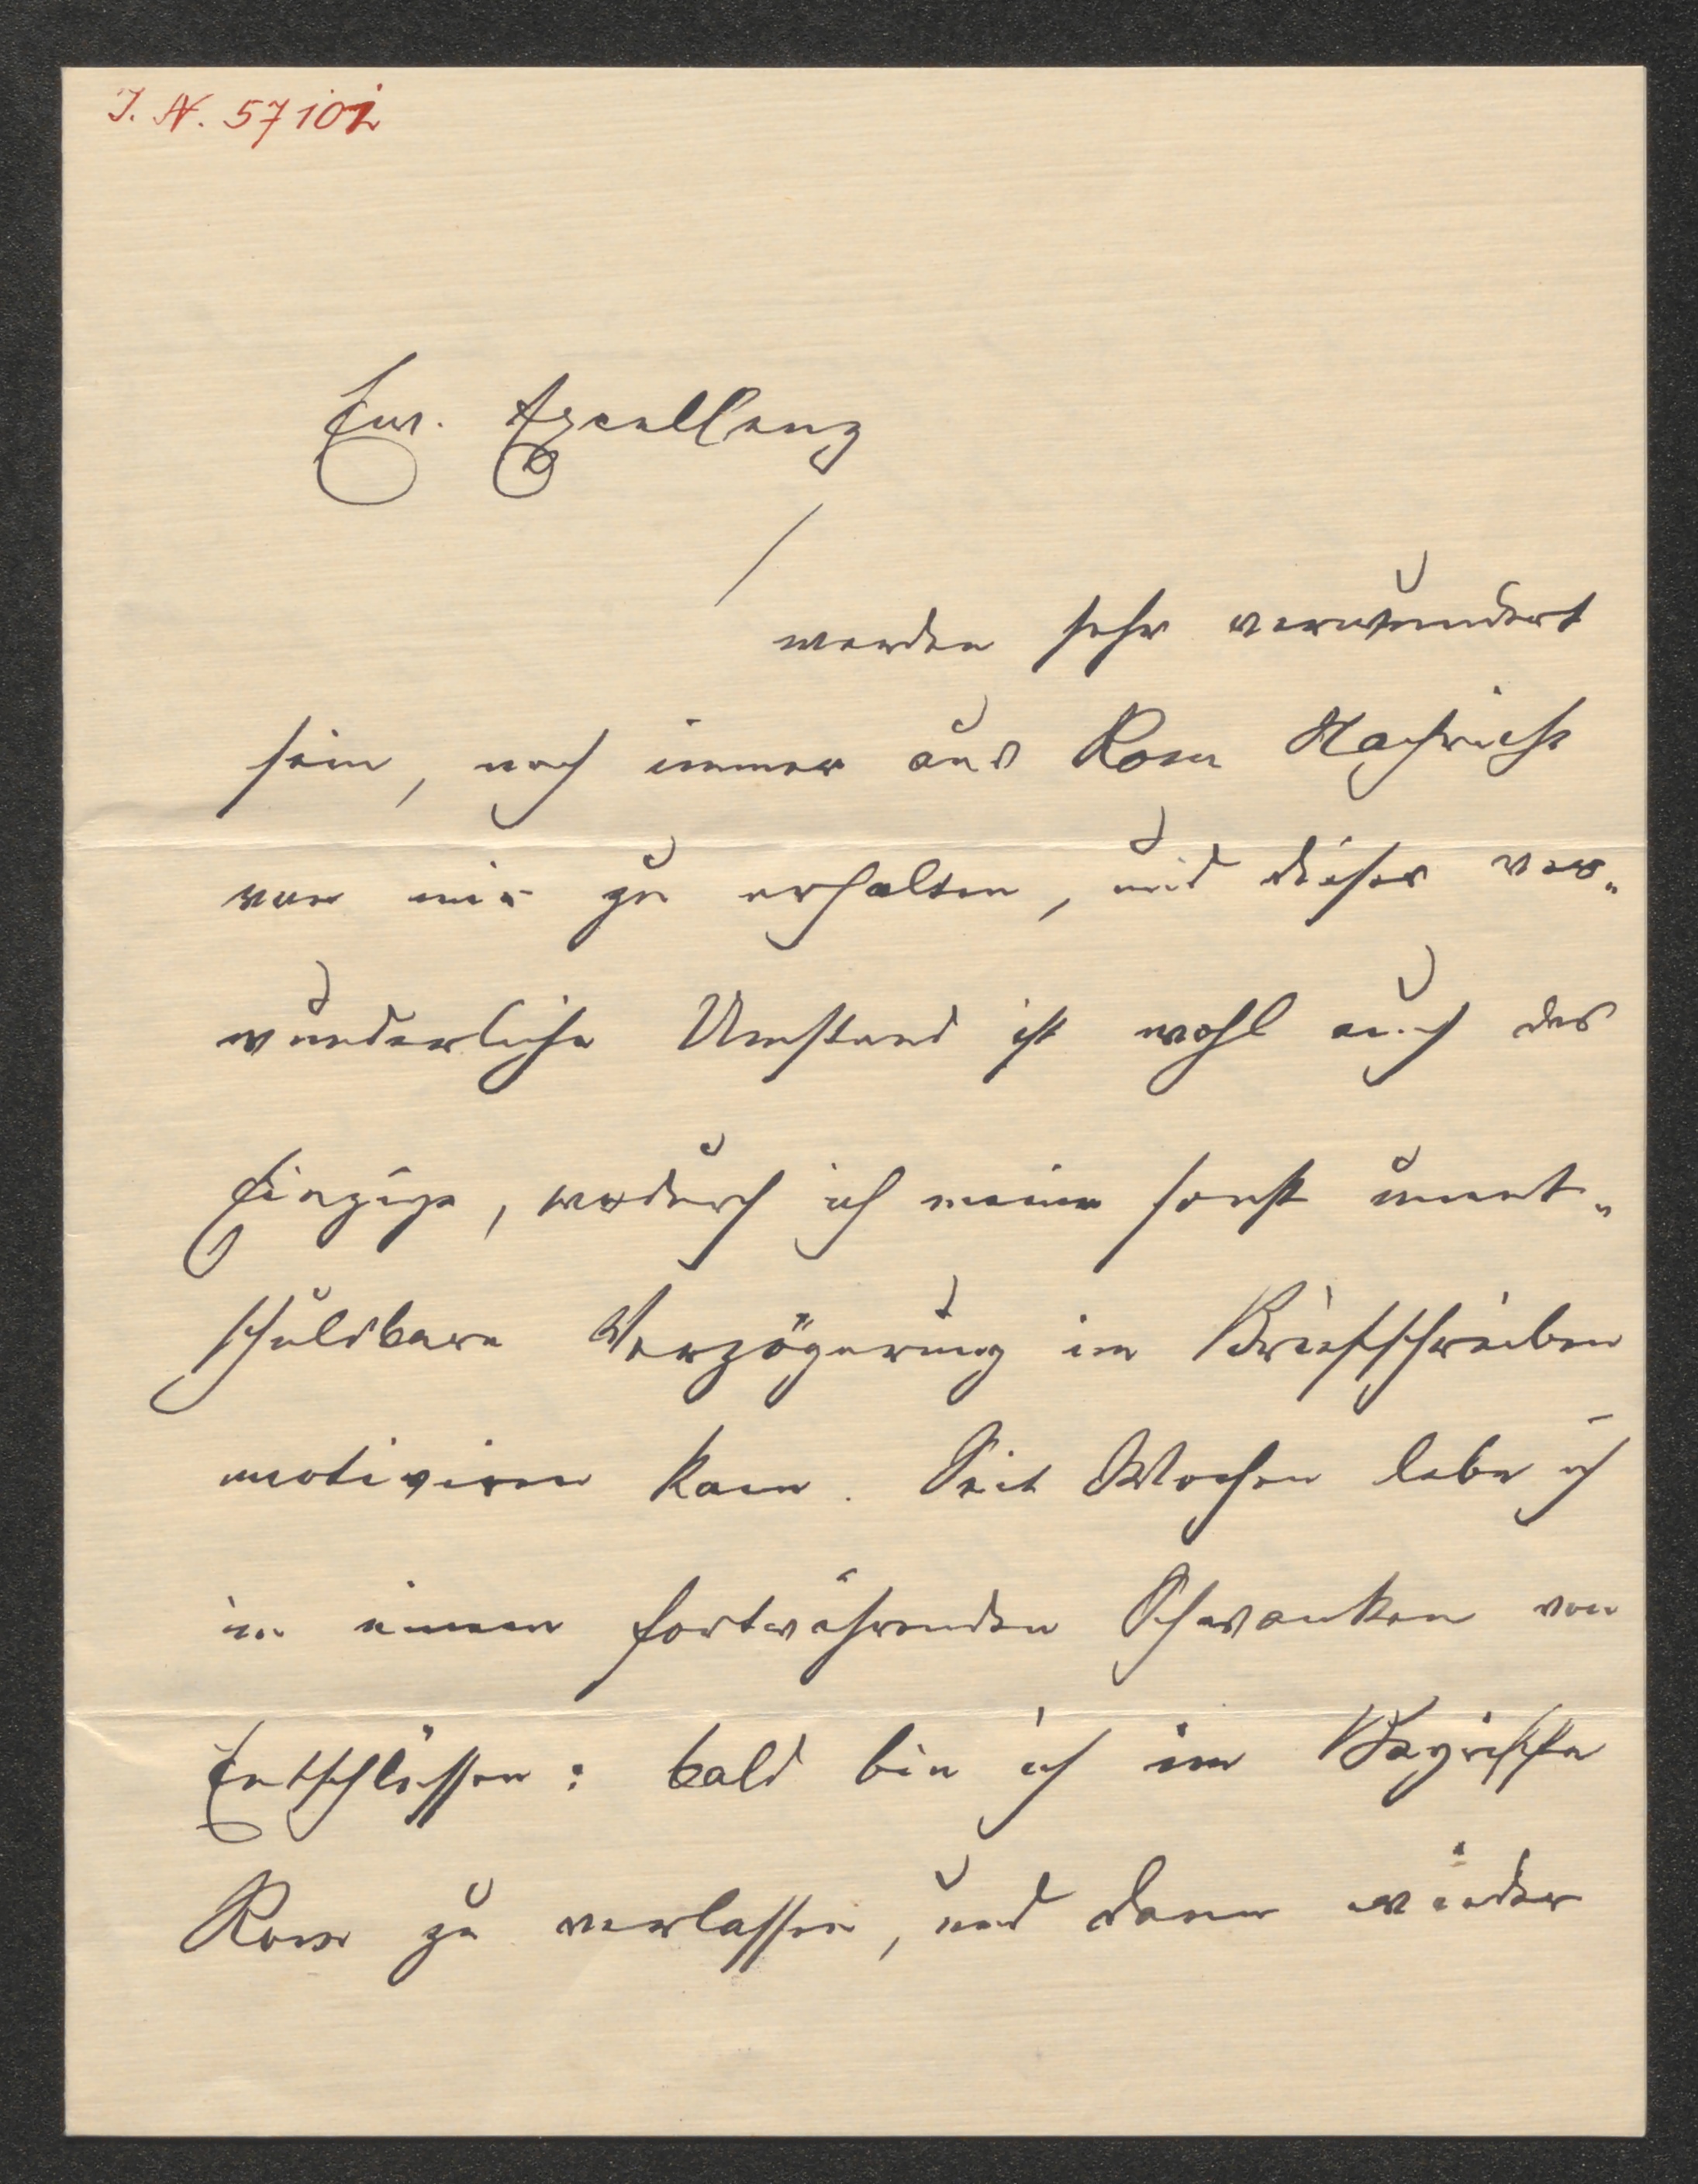 J. N. 57102
Euer. Excellenz
werden sehr verwundert
sein, noch immer aus Rom Nachricht
von mir zu erhalten, und dieser ver-
wunderliche Umstand ist wohl auch das
Einzige, wodurch ich meine sonst unent-
schuldbare Verzögerung im Briefschreiben
motiviren kann. Seit Wochen lebe ich
in einem fortwährenden Schwanken von
Entschlüssen: bald bin ich im Begriffe
Rom zu verlassen, und dann wieder